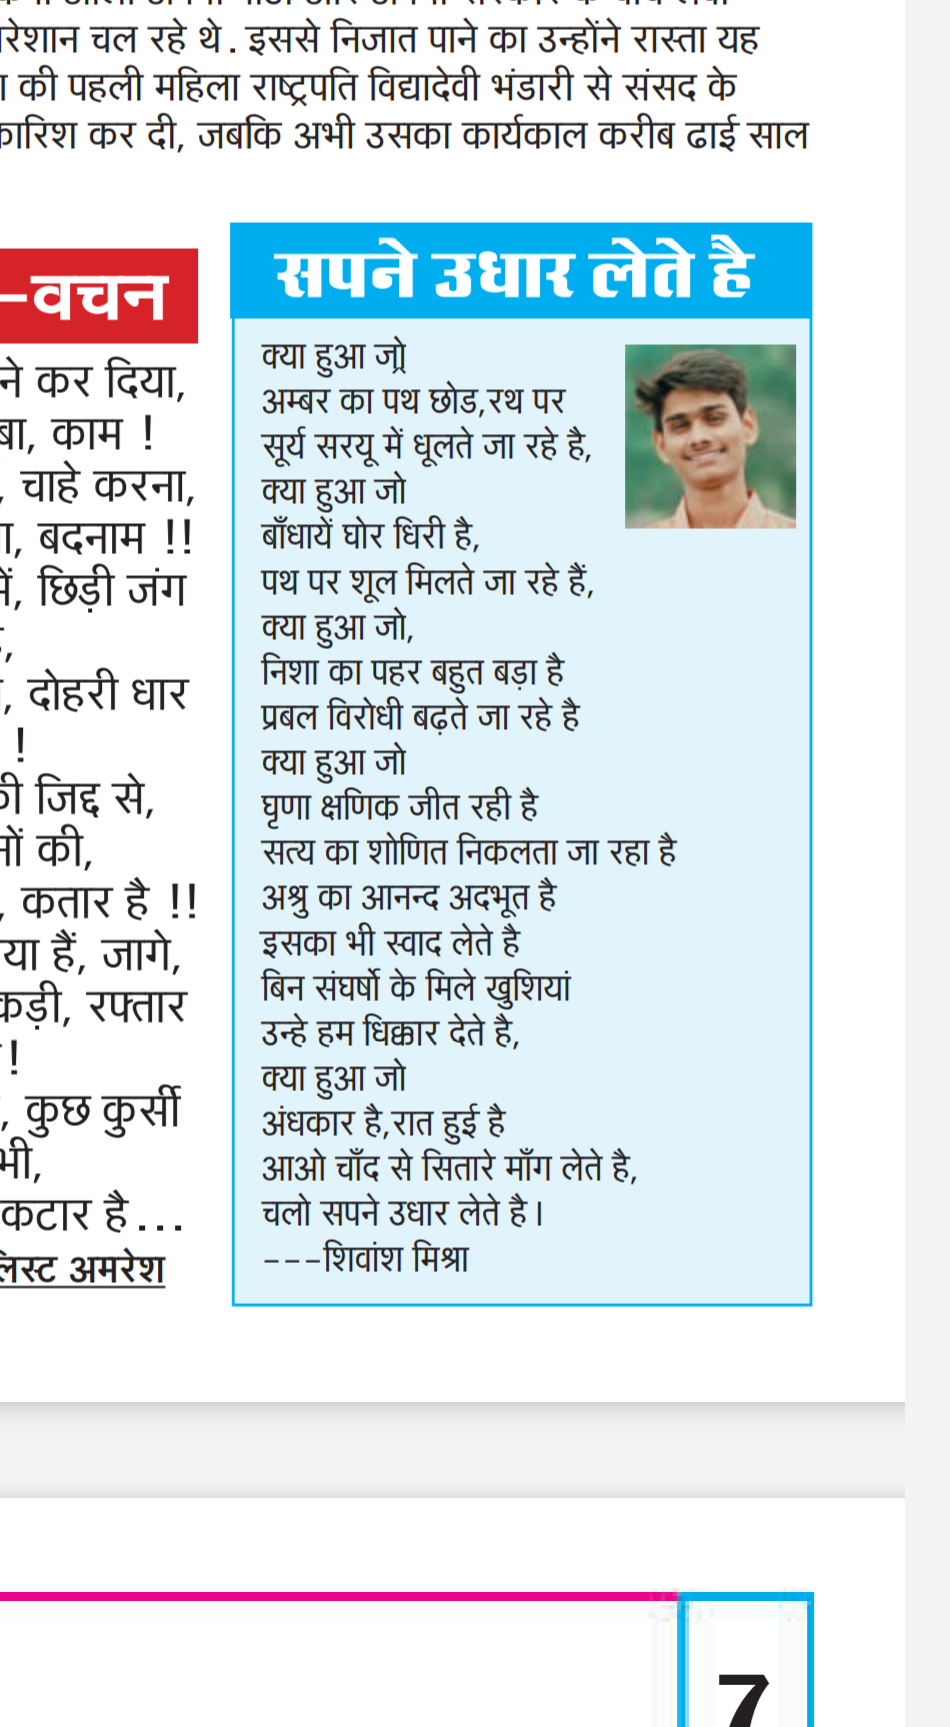 चल रहे थे. इससे निजात पाने का उन्होंने रास्ता यह
की पहली महिला राष्ट्रपति विद्यादेवी भंडारी से संसद के
कर दी, जबकि अभी उसका कार्यकाल करीब ढाई साल
–वचन
ने कर दिया,
काम !
, चाहे करना,
, बदनाम !!
, छिड़ी जंग
,
, दोहरी धार
!
जिद्द से,
की,
, कतार है !!
हैं, जागे,
रफ्तार
!
, कुछ कुर्सी
भी,
कटार है...
अमरेश
सपने उधार लेते है
क्या हुआ जो
अम्बर का पथ छोड,रथ पर
सूर्य सरयू में धूलते जा रहे है,
क्या हुआ जो
बाँधायें घोर धिरी है,
पथ पर शूल मिलते जा रहे हैं,
क्या हुआ जो,
निशा का पहर बहुत बड़ा है
प्रबल विरोधी बढ़ते जा रहे है
क्या हुआ जो
घृणा क्षणिक जीत रही है
सत्य का शोणित निकलता जा रहा है
अश्रु का आनन्द अदभूत है
इसका भी स्वाद लेते है
बिन संघर्षो के मिले खुशियां
उन्हे हम धिक्कार देते है,
क्या हुआ जो
अंधकार है,रात हुई है
आओ चाँद से सितारे माँग लेते है,
चलो सपने उधार लेते है।
---शिवांश मिश्रा
7